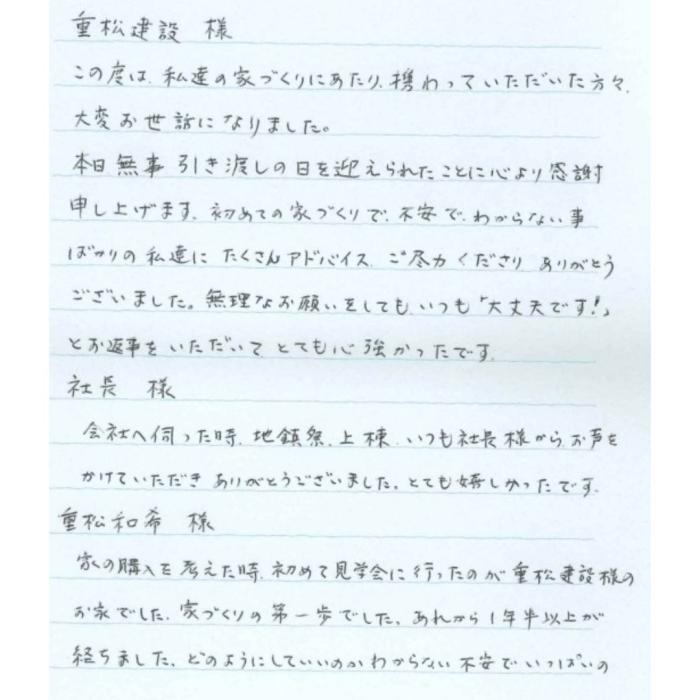 重松建設 様
この度は、私達の家づくりにあたり、携わっていただいた方々、
大変お世話になりました。
本日無事引き渡しの日を迎えられたことに心より感謝
申し上げます。初めての家づくりで、不安で、わからない事
ばかりの私達に たくさんアドバイス、ご尽力くださり、ありがとう
ございました。無理なお願いをしても、いつも「大丈夫です!」
とお返事をいただいて とても心強かったです。
社長 様
会社へ伺った時、地鎮祭、上棟、いつも社長様から、お声を
かけていただき ありがとうございました。とても嬉しかったです。
重松和希 様
家の購入を考えた時、初めて見学会に行ったのが重松建設様の
お家でした。家づくりの第一歩でした。あれから1年半以上が
経ちました。どのようにしていいのかわからない不安でいっぱいの